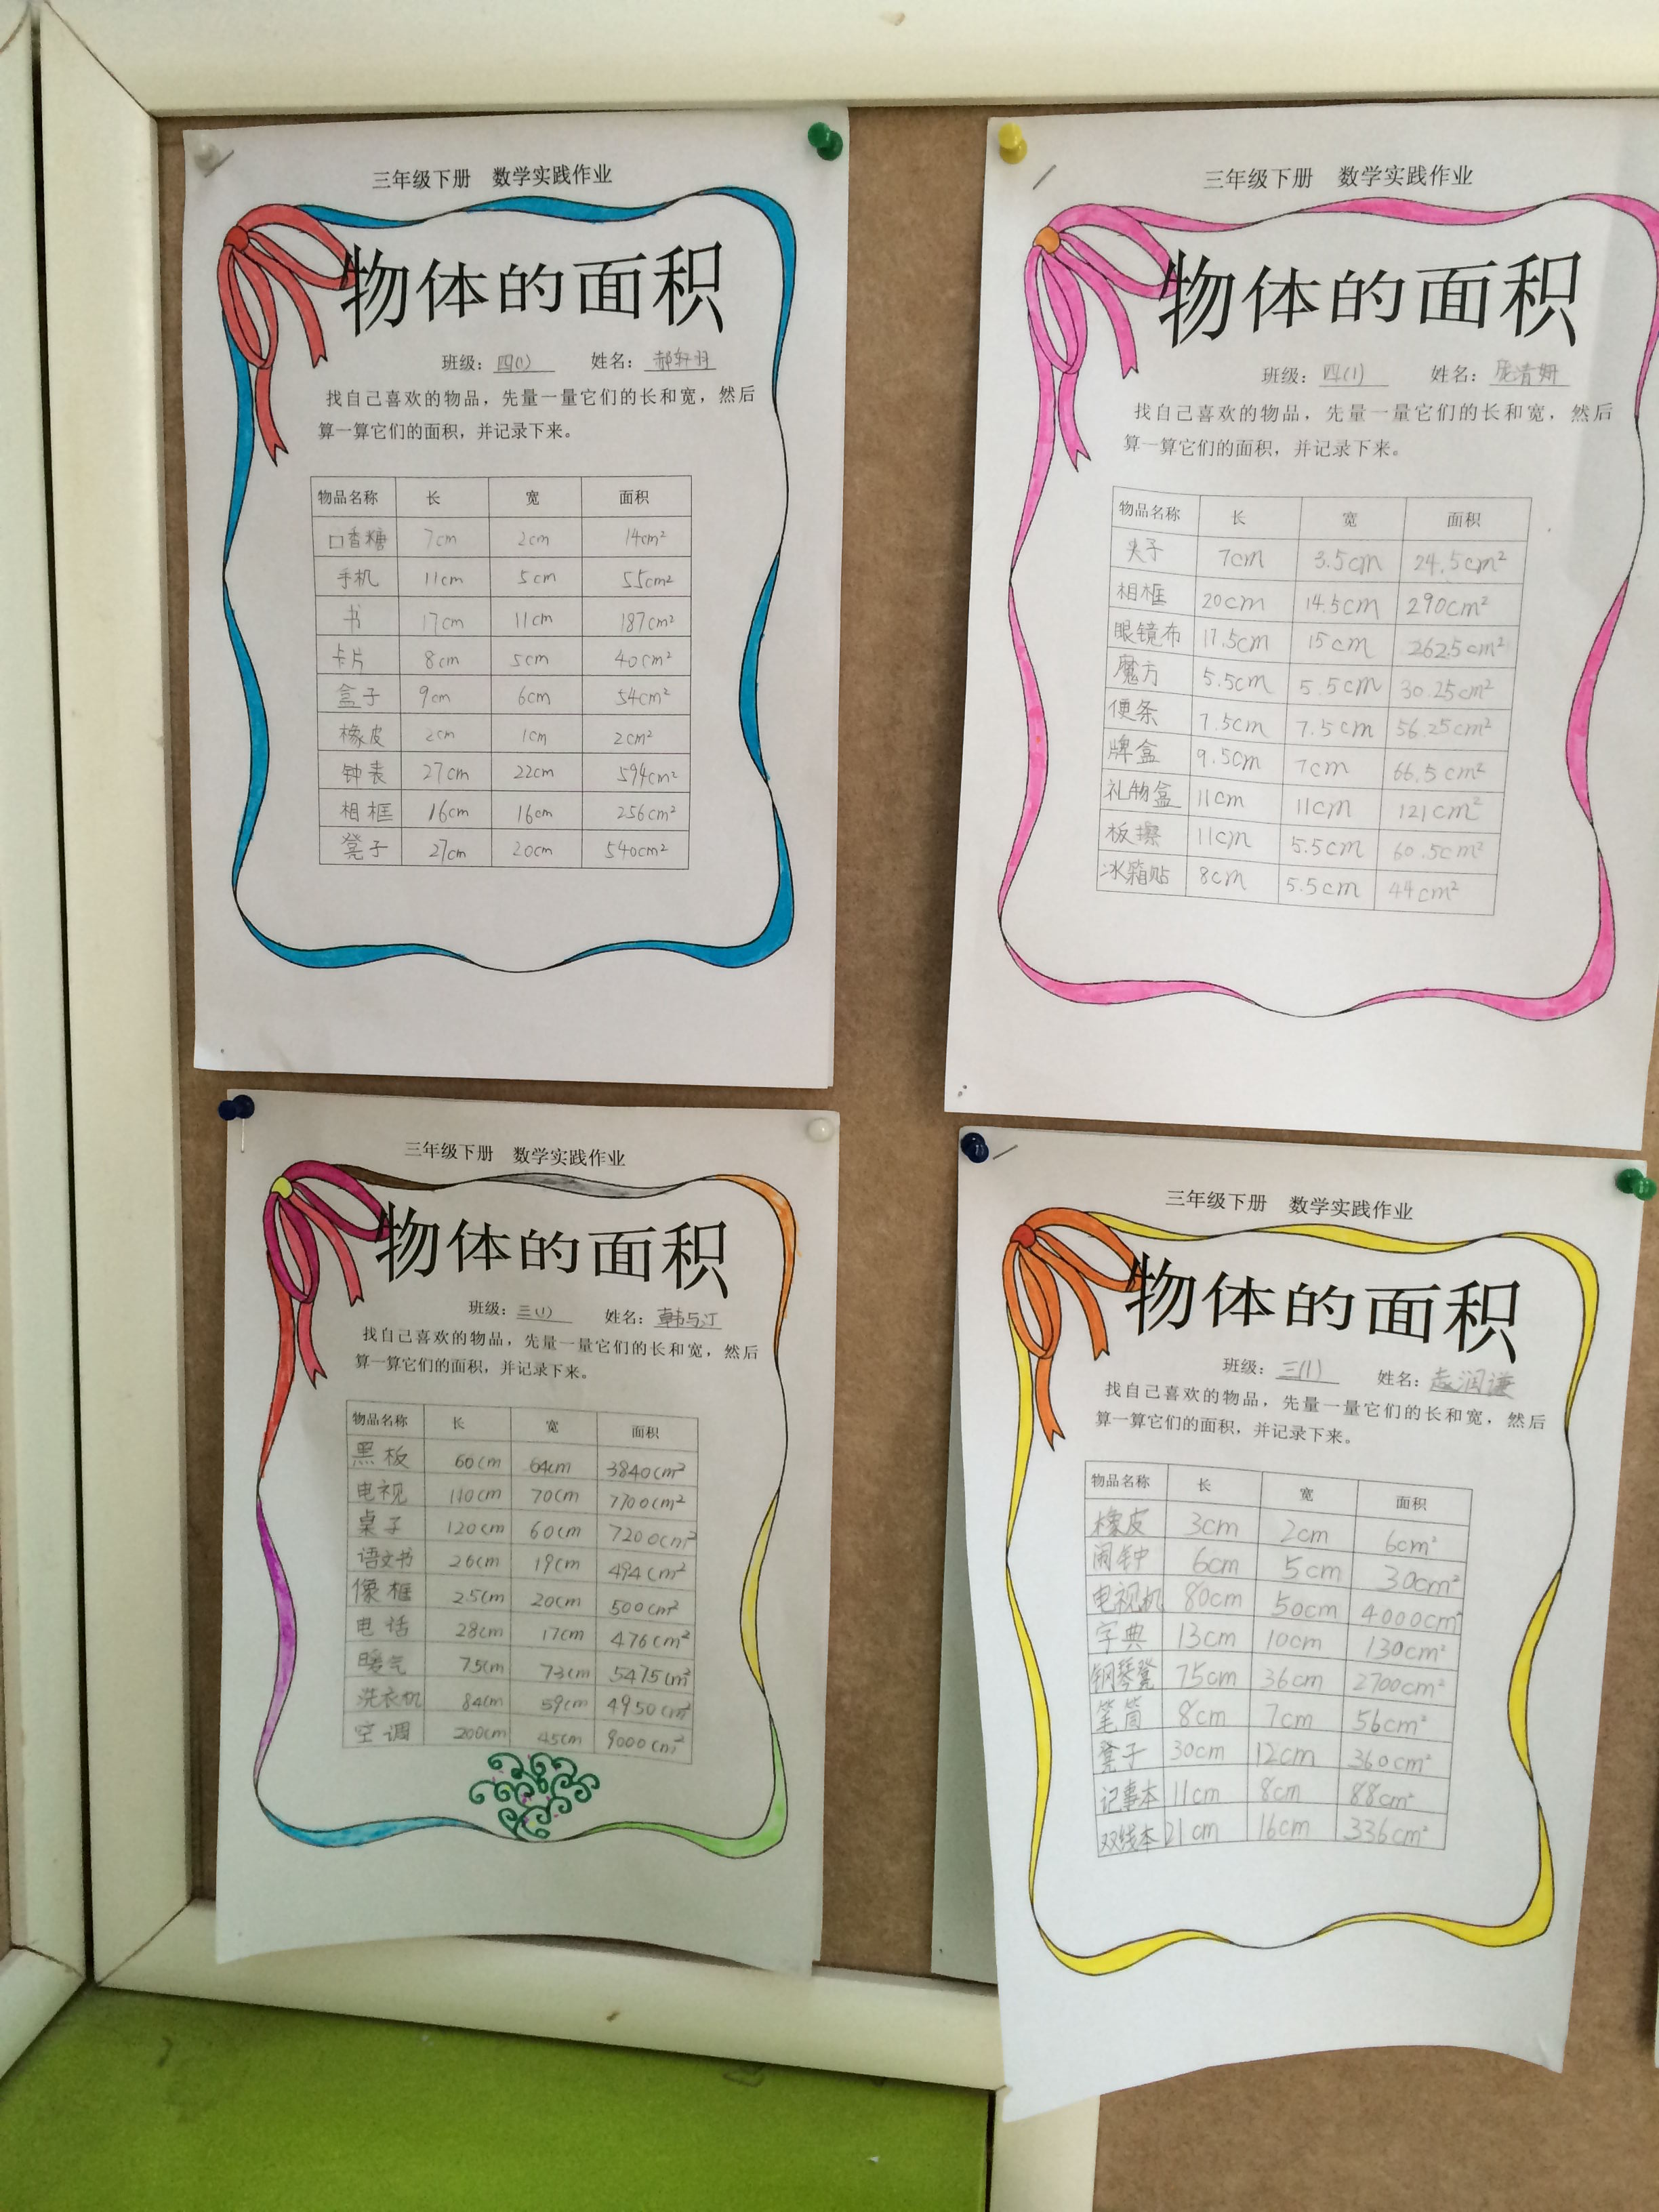 三年级下册 数学实践作业
物体的面积
班级：四(1) 姓名：郝轩羽
找自己喜欢的物品，先量一量它们的长和宽，然后
算一算它们的面积，并记录下来。
物品名称 长 宽 面积
口香糖 7cm 2cm 14cm²
手机 11cm 5cm 55cm²
书 17cm 11cm 187cm²
卡片 8cm 5cm 40cm²
盒子 9cm 6cm 54cm²
橡皮 2cm 1cm 2cm²
钟表 27cm 22cm 594cm²
相框 16cm 16cm 256cm²
凳子 27cm 20cm 540cm²
三年级下册 数学实践作业
物体的面积
班级：四(1) 姓名：庞清妍
找自己喜欢的物品，先量一量它们的长和宽，然后
算一算它们的面积，并记录下来。
物品名称 长 宽 面积
夹子 7cm 3.5cm 24.5cm²
相框 20cm 14.5cm 290cm²
眼镜布 17.5cm 15cm 262.5cm²
魔方 5.5cm 5.5cm 30.25cm²
便条 7.5cm 7.5cm 56.25cm²
牌盒 9.5cm 7cm 66.5cm²
礼物盒 11cm 11cm 121cm²
板擦 11cm 5.5cm 60.5cm²
冰箱贴 8cm 5.5cm 44cm²
三年级下册 数学实践作业
物体的面积
班级：三(1) 姓名：韩与汀
找自己喜欢的物品，先量一量它们的长和宽，然后
算一算它们的面积，并记录下来。
物品名称 长 宽 面积
黑板 60cm 64cm 3840cm²
电视 110cm 70cm 7700cm²
桌子 120cm 60cm 7200cm²
语文书 26cm 19cm 494cm²
像框 25cm 20cm 500cm²
电话 28cm 17cm 476cm²
暖气 75cm 73cm 5475cm²
洗衣机 84cm 59cm 4950cm²
空调 200cm 45cm 9000cm²
三年级下册 数学实践作业
物体的面积
班级：三(1) 姓名：润谦
找自己喜欢的物品，先量一量它们的长和宽，然后
算一算它们的面积，并记录下来。
物品名称 长 宽 面积
橡皮 3cm 2cm 6cm²
闹钟 6cm 5cm 30cm²
电视机 80cm 50cm 4000cm²
字典 13cm 10cm 130cm²
钢琴凳 75cm 36cm 2700cm²
笔筒 8cm 7cm 56cm²
凳子 30cm 12cm 360cm²
记事本 11cm 8cm 88cm²
双线本 21cm 16cm 336cm²